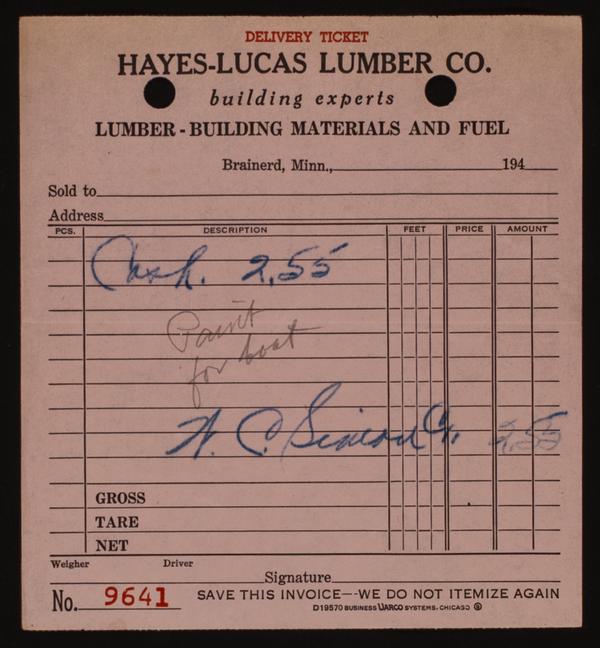 DELIVERY TICKET
HAYES-LUCAS LUMBER CO.
building experts
LUMBER - BUILDING MATERIALS AND FUEL
Brainerd, Minn., 194
Sold to
Address
PCS. DESCRIPTION FEET PRICE AMOUNT
Cash. 2.55
Paint
for boat
W. C. 2.55
GROSS
TARE
NET
Weigher Driver
Signature
No. 9641 SAVE THIS INVOICE—WE DO NOT ITEMIZE AGAIN
D19570 BUSINESS UARCO SYSTEMS, CHICAGO